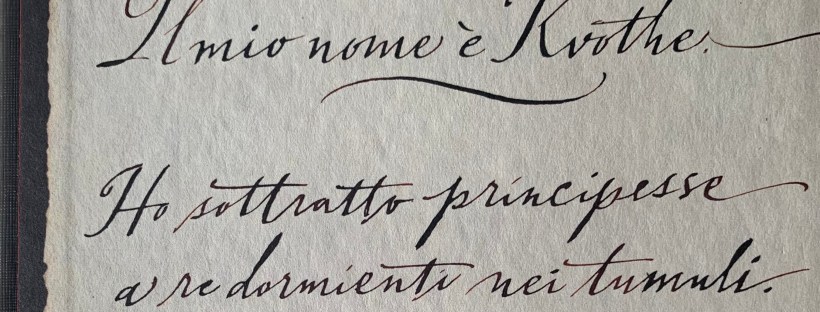 Il mio nome è Kvothe.
Ho sottratto principesse
a re dormienti nei tumuli.